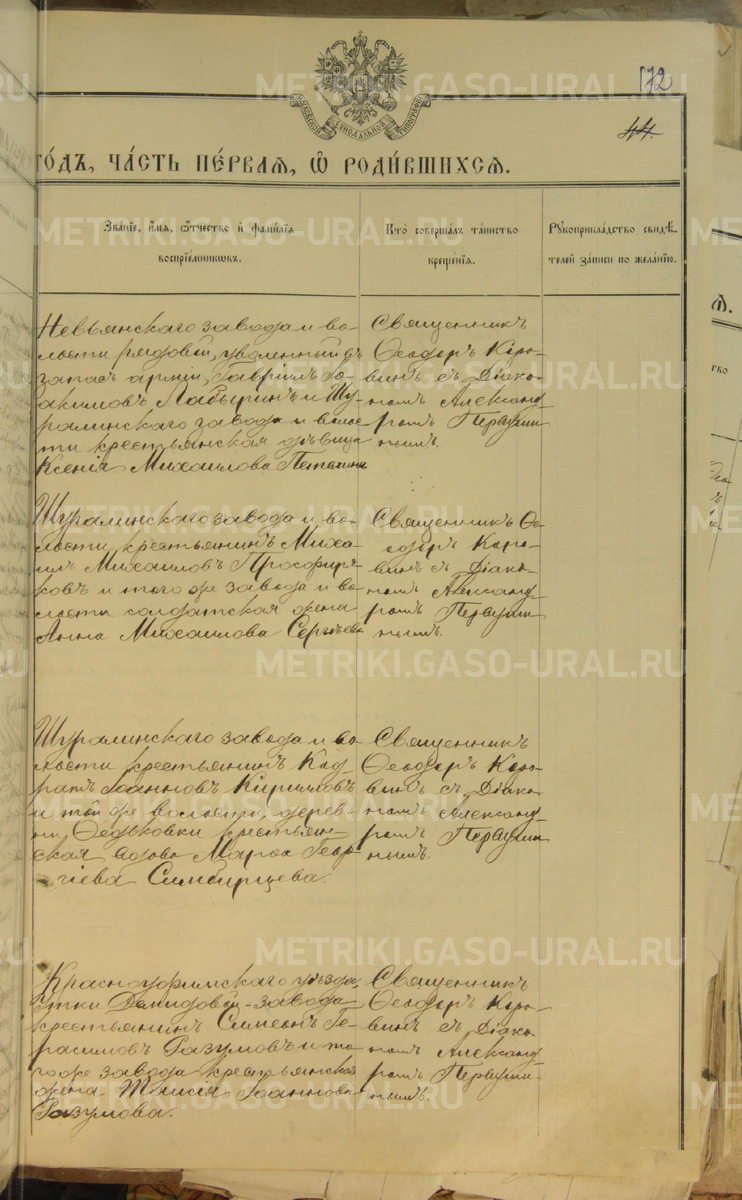 METRIKI.GASO-URAL.RU
МОСКОВСКОЙ СѴНОДАЛЬНОЙ ТИПОГРАФІИ
172
44.
ГОДЪ, ЧАСТЬ ПЕРВАЯ, Ѡ РОДИВШИХСЯ.
Званіе, имя, ѿчество и фамилія воспріемниковъ.
Кто совершалъ таинство крещенія.
Рукоприкладство свидѣтелей записи по желанію.
Невьянскаго завода и во-
лости рядовой, уволенный въ
запасъ арміи, Гавріилъ Іо-
акимовъ Лабыринъ и Шу-
ралинскаго завода и волос-
ти крестьянская дѣвица
Ксенія Михаилова Петехина
Священникъ
Ѳеодоръ Коро-
винъ съ Діако-
номъ Александ-
ромъ Первуши-
нымъ.
Шуралинскаго завода и во-
лости крестьянинъ Миха-
илъ Михаиловъ Просфиря-
ковъ и того же завода и во-
лости солдатская жена
Анна Михаилова Сергѣева
Священникъ Ѳе-
одоръ Коро-
винъ съ Діако-
номъ Александ-
ромъ Первуши-
нымъ.
Шуралинскаго завода и во-
лости крестьянинъ Код-
ратъ Іоанновъ Кириловъ
и той же волости, дерев-
ни Ѳедьковки крестьян-
ская вдова Марѳа Геор-
гіева Симбирцева.
Священникъ
Ѳеодоръ Коро-
винъ съ Діако-
номъ Александ-
ромъ Первуши-
нымъ.
Красноуфимскаго уѣзда,
Утки Демидовой завода
крестьянинъ Симеонъ Ге-
расимовъ Разумовъ и то-
го же завода крестьянская
жена Таисія Іоаннова
Разумова.
Священникъ
Ѳеодоръ Коро-
винъ съ Діако-
номъ Александ-
ромъ Первуши-
нымъ.